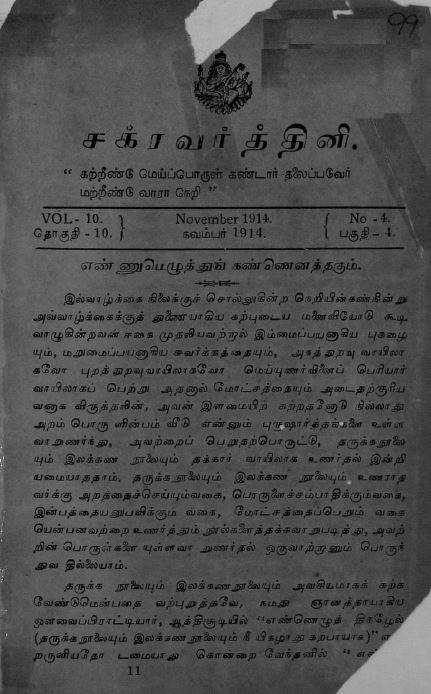 99
சக்ரவர்த்தினி.
“ கற்றீண்டு மெய்ப்பொருள் கண்டார் தலைப்படுவேர்
மற்றீண்டு வாரா நெறி ”
VOL - 10. November 1914. No - 4.
தொகுதி - 10. நவம்பர் 1914. பகுதி - 4.
எண்ணுமெழுத்துங் கண்ணெனத்தகும்.
இல்வாழ்க்கை நிலைக்குச் சொல்லுகின்ற நெறியின்கண்நின்று
அவ்வாழ்க்கைக்குத் துணையாகிய கற்புடைய மனைவியோடு கூடி
வாழுகின்றவன் ஈகை முதலியவற்றால் இம்மைப்பயனாகிய புகழை
யும், மறுமைப்பயனாகிய சுவர்க்கத்தையும், அகத்துறவு வாயிலா
கவோ புறத்துறவுவாயிலாகவோ மெய்யுணர்வினைப் பெரியார்
வாயிலாகப் பெற்று அதனால் மோட்சத்தையும் அடைதற்குரிய
வனாக விருத்தலின், அவன் இளமையிற் கற்றதனோடு நில்லாது
அறம் பொரு ளின்பம் வீடு என்னும் புருஷார்த்தங்களை உள்ள
வாறுணர்ந்து, அவற்றைப் பெறுதற்பொருட்டு, தருக்கநூலை
யும் இலக்கண நூலையும் தக்கார் வாயிலாக உணர்தல் இன்றி
யமையாததாம். தருக்க நூலையும் இலக்கண நூலையும் உணராத
வர்க்கு அறத்தைச்செய்யும்வகை, பொருளைச்சம்பாதிக்கும்வகை,
இன்பத்தையனுபவிக்கும் வகை, மோட்சத்தைப்பெறும் வகை
யென்பனவற்றை உணர்த்தும் நூல்களைத்தக்கவாறுபடித்து, அவற்
றின் பொருள்களை யுள்ளவா றுணர்தல் ஒருவாற்றானும் பொருந்
துவ தில்லையாம்.
தருக்க நூலையும் இலக்கணநூலையும் அவசியமாகக் கற்க
வேண்டுமென்பதை வற்புறுத்தவே, நமது ஞானத்தாயாகிய
ஔவைப்பிராட்டியார், ஆத்திசூடியில் “எண்ணெழுத் திகழேல்
(தருக்கநூலையும் இலக்கணநூலையும் நீ யிகழாது கற்பாயாக)”
றருளியதோ டமையாது கொன்றை வேந்தனில் “
11